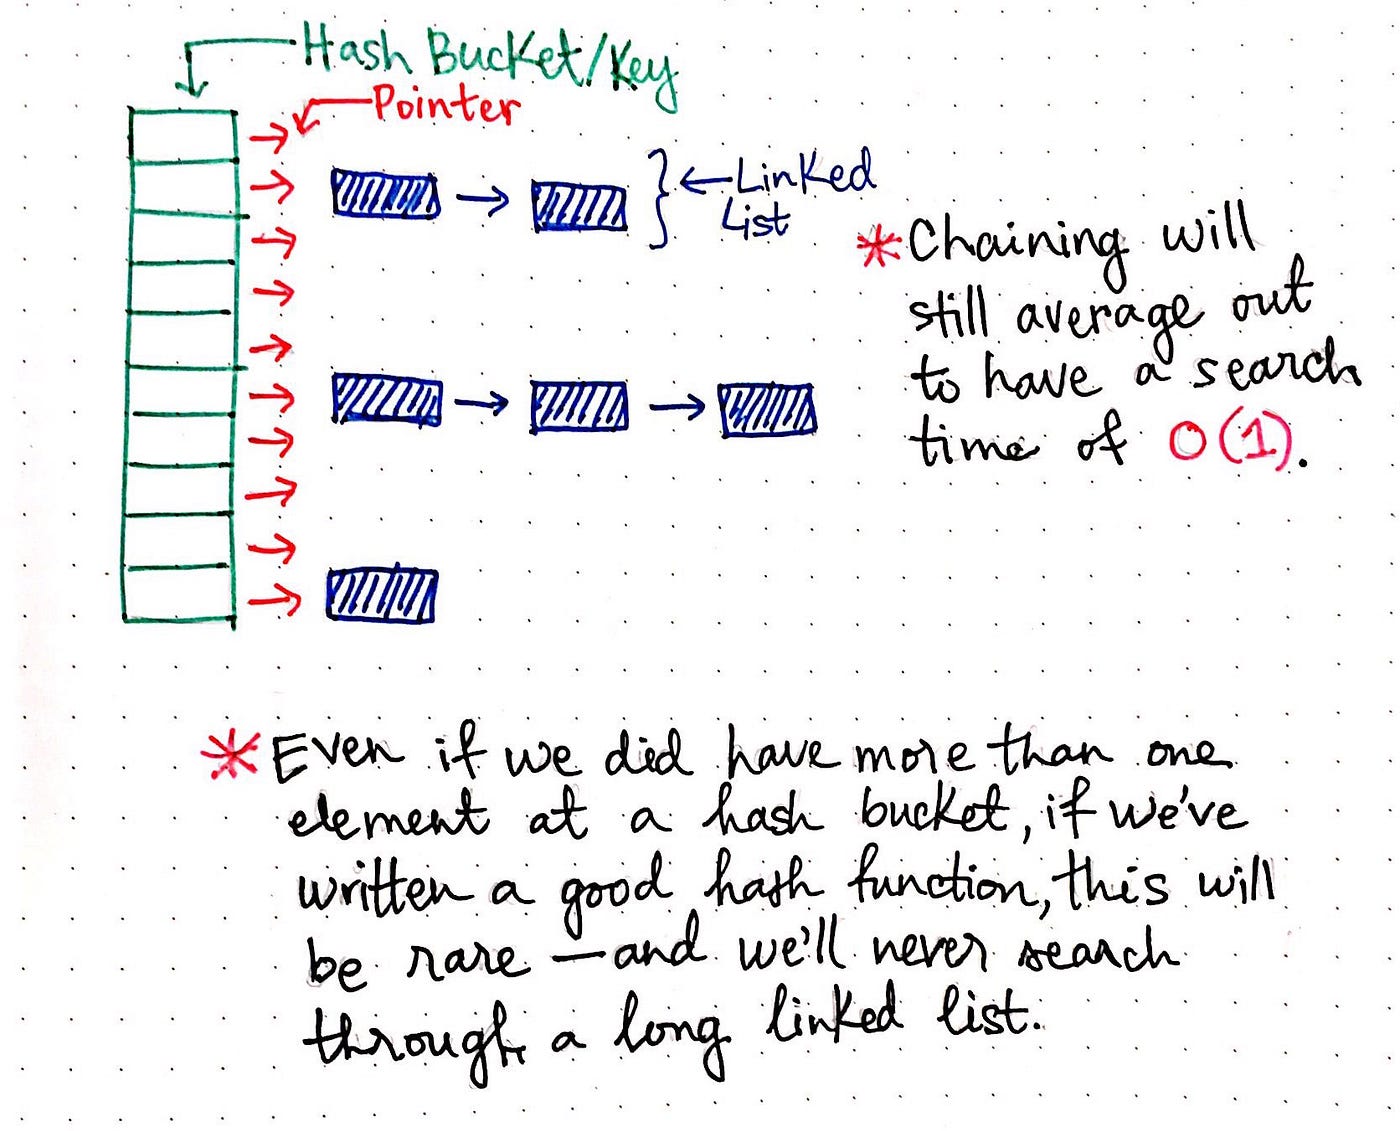 Hash Bucket/Key
Pointer
Linked
List
*Chaining will
still average out
to have a search
time of O(1).
*Even if we did have more than one
element at a hash bucket, if we've
written a good hash function, this will
be rare —and we'll never search
through a long linked list.